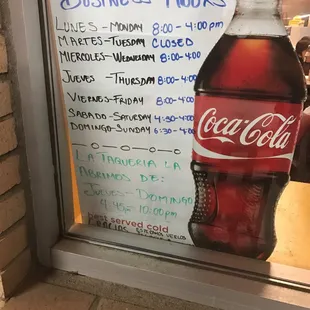 Business Hours
LUNES - MONDAY 8:00 - 4:00 pm
MARTES - TUESDAY CLOSED
MIERCOLES - WEDNESDAY 8:00 - 4:00
JUEVES - THURSDAY 8:00 - 4:00
VIERNES - FRIDAY 8:00 - 4:00
SABADO - SATURDAY 4:30 - 4:00
DOMINGO - SUNDAY 6:30 - 4:00
Coca-Cola
LA TAQUERIA LA
ABRIMOS DE:
JUEVES - DOMINGO
4:45 - 10:00 pm
best served cold
GRACIAS